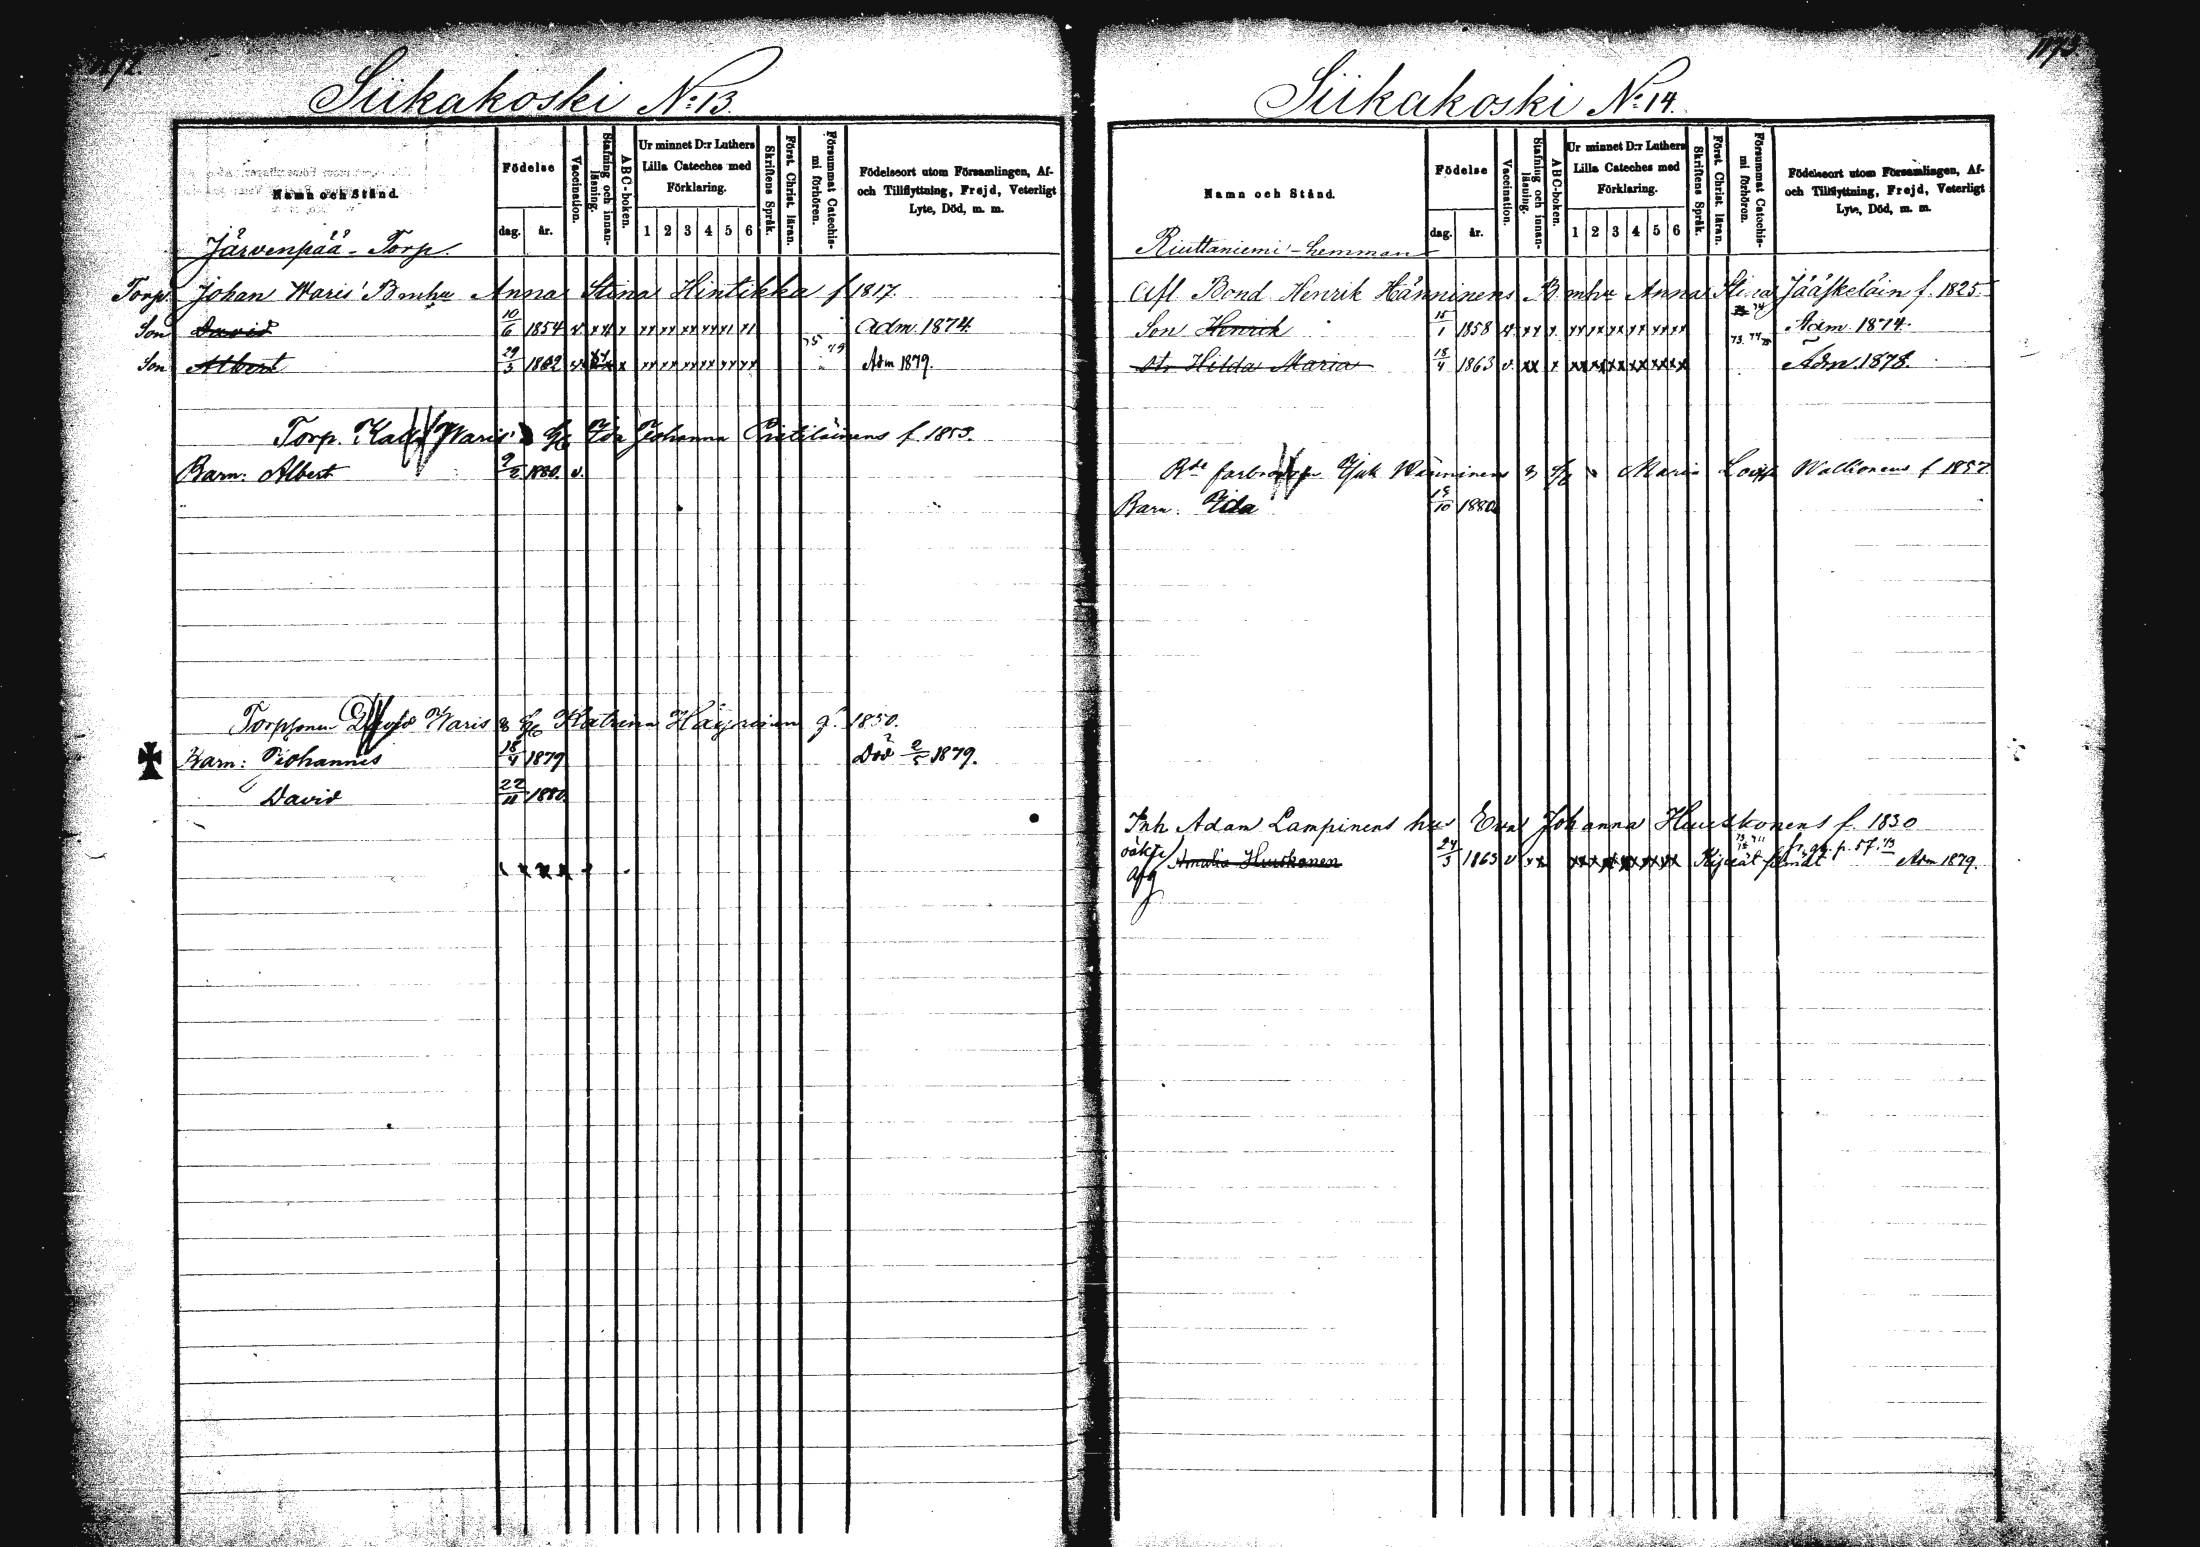 Siikakoski No: 13.
Namn och Stånd.
Födelse
dag. år.
Vaccination.
Stafning och innan-läsning.
ABC-boken.
Ur minnet D:r Luthers Lilla Cateches med Förklaring.
1 2 3 4 5 6
Skriftens Språk.
Först. Christ. läran.
Försummat Catechis-mi förhören.
Födelseort utom Församlingen, Af- och Tillflyttning, Frejd, Veterligt Lyte, Död, m. m.
Järvenpää - Torp.
Torp. Johan Waris' Bmhu Anna Stina Hintikka f 1817.
Son David 10/6 1854 v xx x xx xx xx xx xx Adm. 1874.
Son Albert 29/3 1862 v. x xx xx xx xx xx xx 75 79 Adm 1879.
Torp. Waris' Ida Johanna f. 1853.
Barn: Albert 9/2 1880. v.
Torpsonen David Waris & Katrina Häyrinen f. 1850.
Barn: Johannes 18/4 1879 Död 2/5 1879.
David 22/11 1880.
Siikakoski No: 14.
Namn och Stånd.
Födelse
dag. år.
Vaccination.
Stafning och innan-läsning.
ABC-boken.
Ur minnet D:r Luthers Lilla Cateches med Förklaring.
1 2 3 4 5 6
Skriftens Språk.
Först. Christ. läran.
Försummat Catechis-mi förhören.
Födelseort utom Församlingen, Af- och Tillflyttning, Frejd, Veterligt Lyte, Död, m. m.
Riuttaniemi - hemman
Afl. Bond Henrik Hänninens Bmhu Anna Stina Jääskeläin f. 1825.
Son Henrik 15/1 1858 v. xx x. xx xx xx xx xx xx 74 Adm. 1874.
dr Hilda Maria 18/4 1863 v. xx x xx xx xx xx xx xx 73. 74 Adm. 1878.
Hänninens & Maria Lovisa f 1857
Barn: Ida 10 1880
Inh Adam Lampinens hus Eva Johanna Huuskonens f. 1830
oäkta Amalia Huuskonen 24/3 1863 v xx xx xx xx xx xx xx p. 57. Adm 1879.